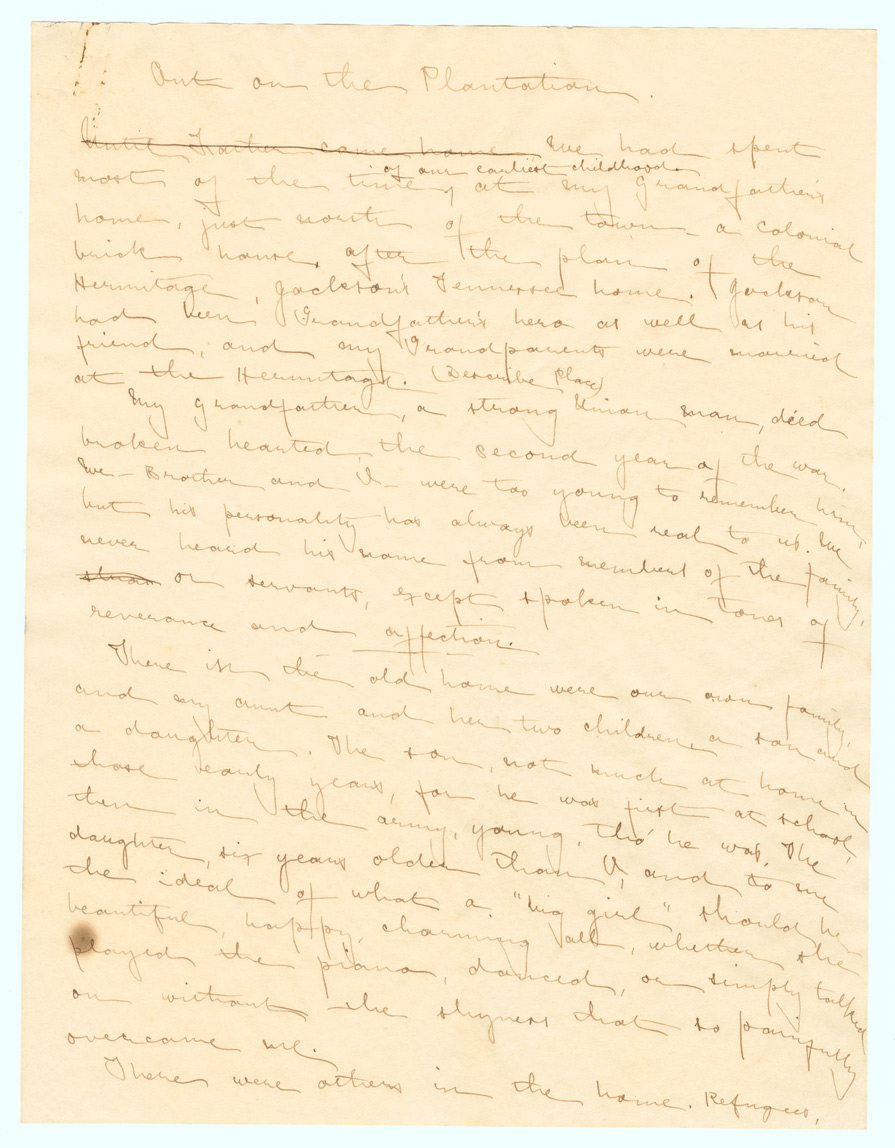 Out on the Plantation.
Until Father came home We had spent
of our earliest childhood
most of the time, at my Grandfather's
home, just north of the town - a colonial
brick house, after the plan of the
Hermitage, Jackson's Tennessee home. Jackson
had been Grandfather's hero as well as his
friend, and my Grandparents were married
at the Hermitage. (Describe Place)
My grandfather, a strong Union man, died
broken hearted, the second year of the war.
We - Brother and I - were too young to remember him,
but his personality has always been real to us. We
never heard his name from members of the family,
or servants, except spoken in tones of
reverance and affection.
There in the old home were our own family,
and my aunt and her two children, a son and
a daughter. The son, not much at home in
those early years, for he was first at school,
then in the army, young, tho' he was. The
daughter, six years older than I, and to me
the ideal of what a "big girl" should be -
beautiful, happy, charming all, whether she
played the piano, danced, or simply talked
on without the shyness that so painfully
overcame me.
There were others in the home. Refugees,